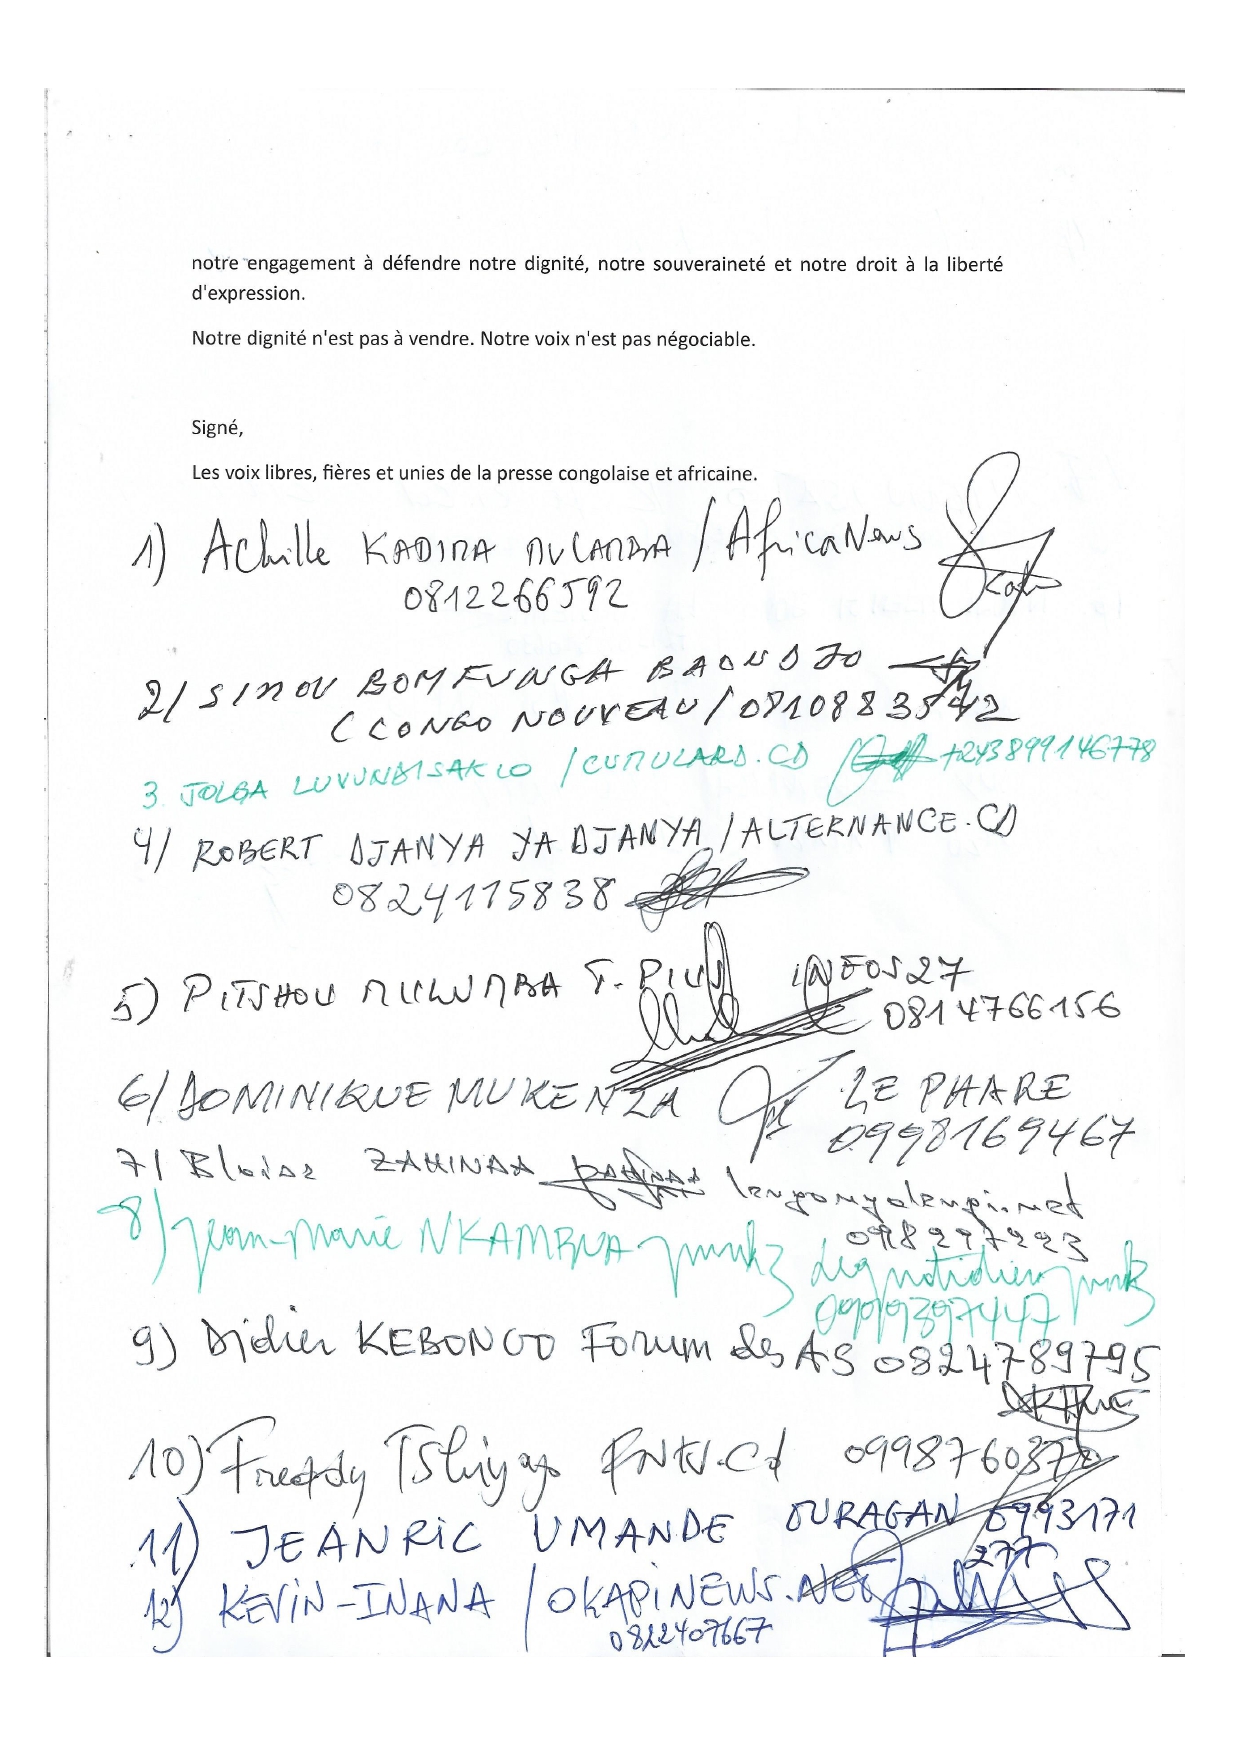 notre engagement à défendre notre dignité, notre souveraineté et notre droit à la liberté
d'expression.
Notre dignité n'est pas à vendre. Notre voix n'est pas négociable.
Signé,
Les voix libres, fières et unies de la presse congolaise et africaine.
1) Achille KADIMA MULAMBA / AfricaNews
0812266592
2/ SIMON BOMFUNGA BAONDJO
( CONGO NOUVEAU / 0810883572
3. JOLGA LUVUNDISAKIO / CUMULARD.CD +243899146778
4/ ROBERT DJANYA YA DJANYA / ALTERNANCE.CD
0824115838
5) PITSHOU MULUMBA T. PIUS INFOS27
0814766156
6/ DOMINIQUE MUKENZA LE PHARE
0998169467
7/ Blaise ZAHINDA
8) Jean-Marie NKAMBUA
9) Didier KEBONGO Forum des AS 0824789795
10) Freddy 
11) JEANRIC UMANDE OURAGAN 0993171
277
12) KEVIN-INANA / OKAPINEWS.NET
0822407667